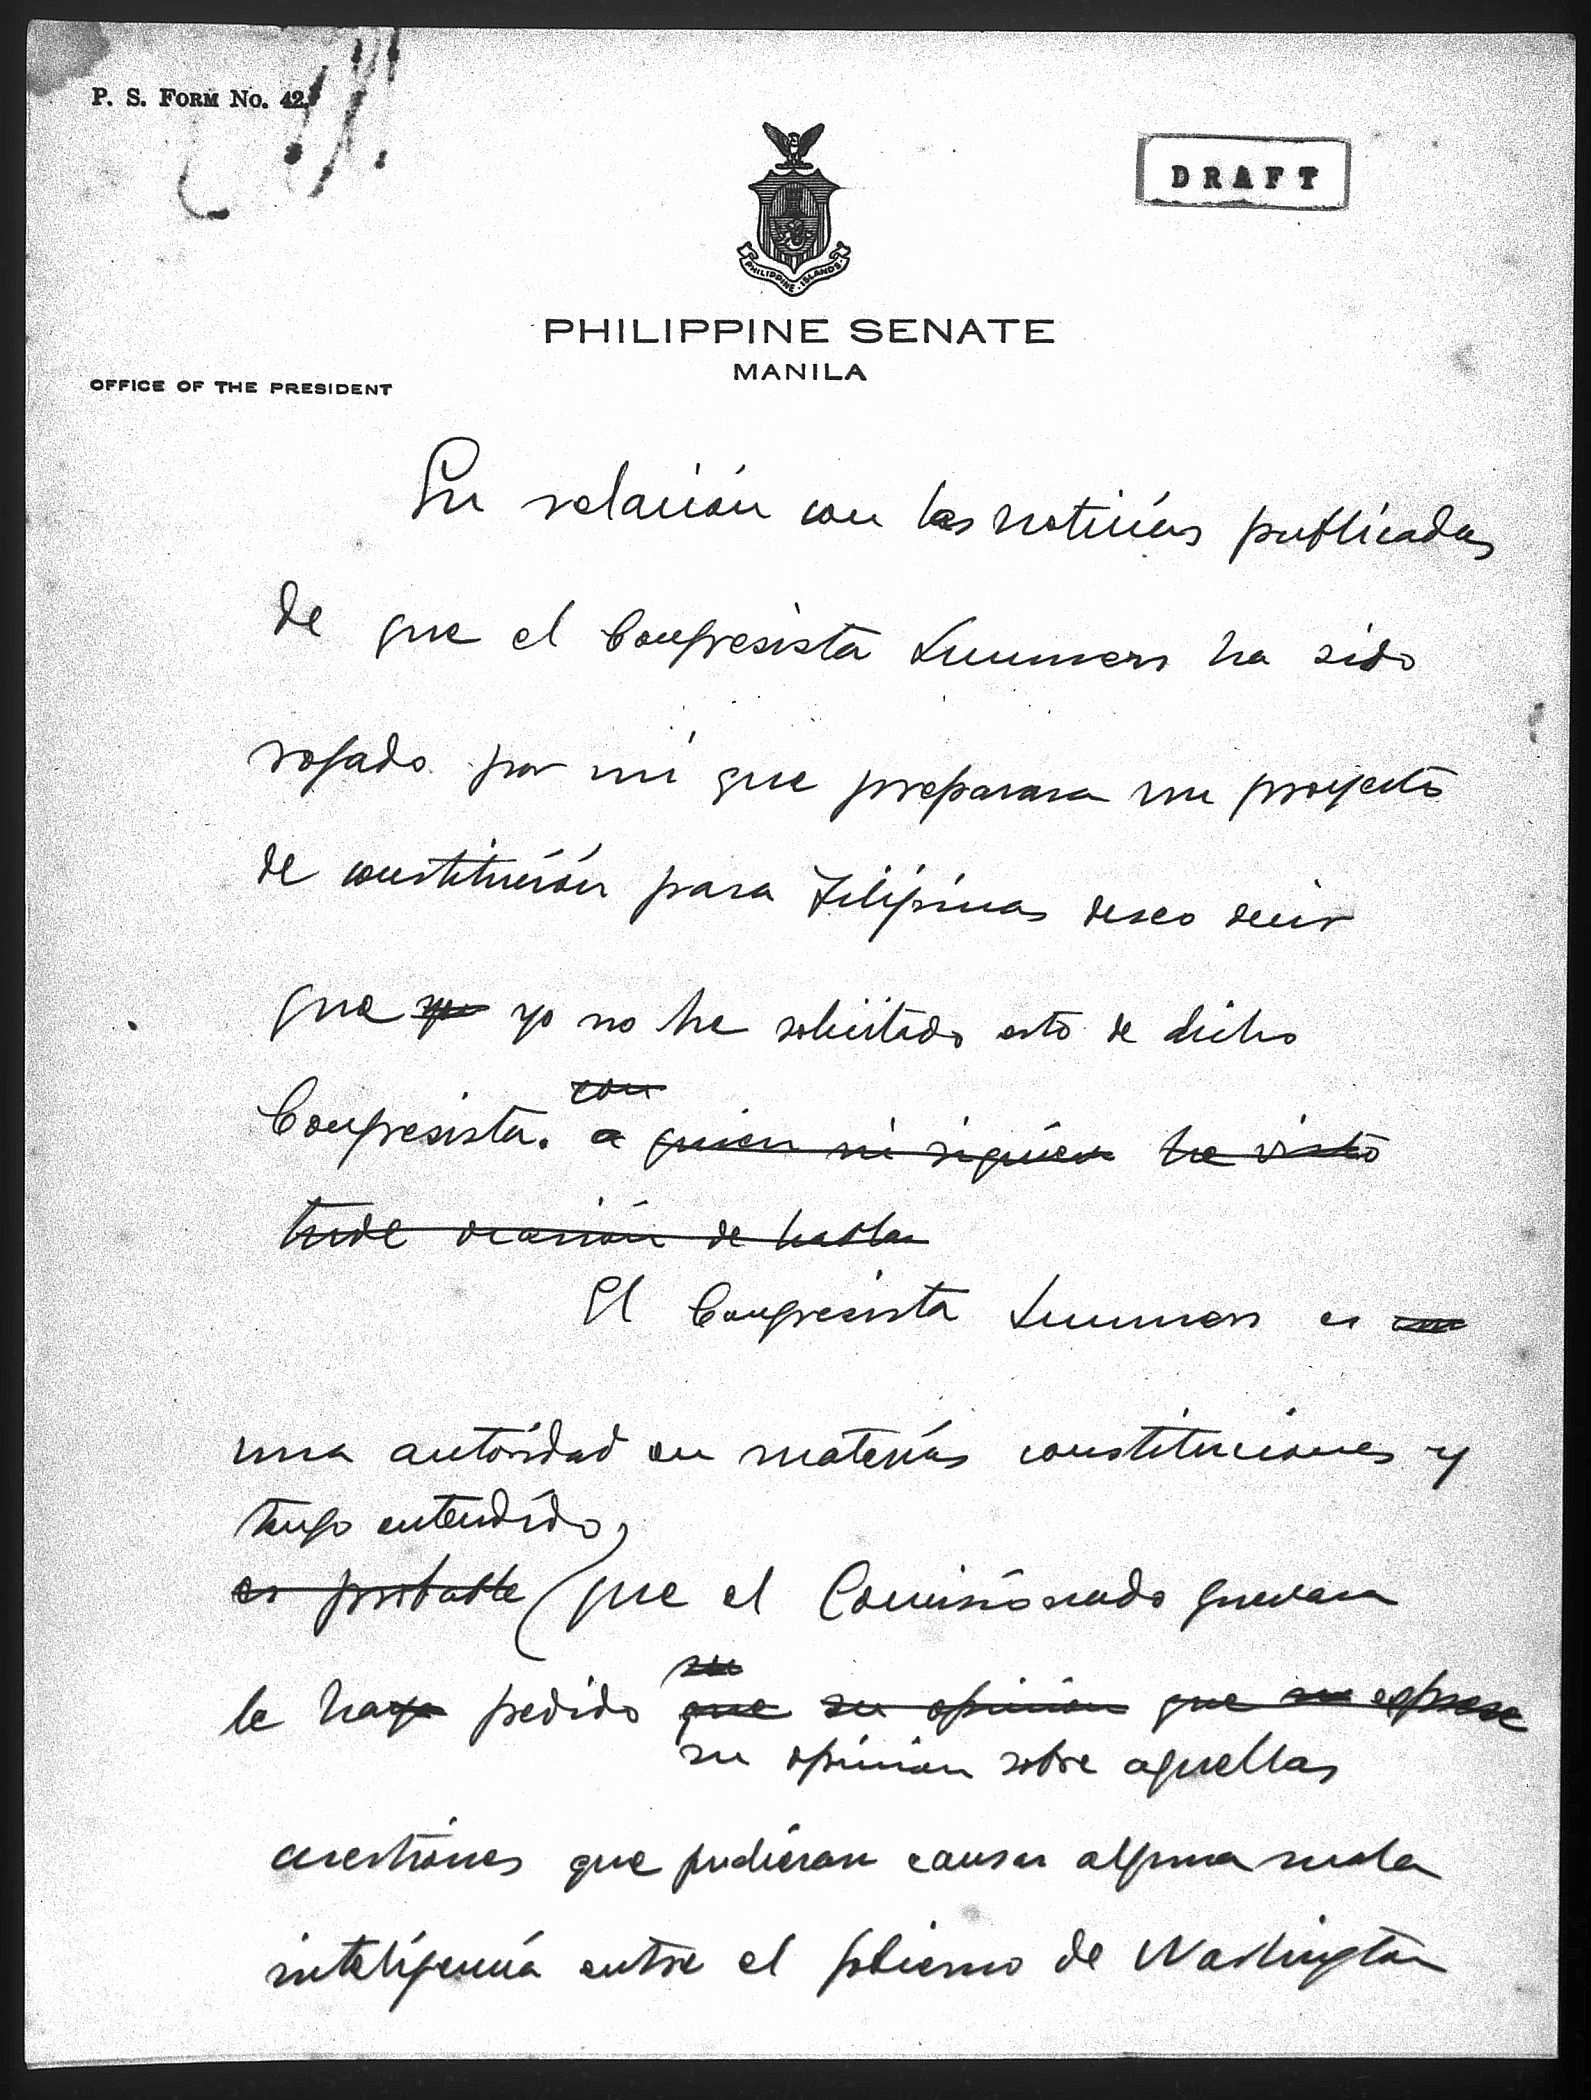 P. S. FORM NO. 42.
DRAFT
PHILIPPINE ISLANDS
PHILIPPINE SENATE
MANILA
OFFICE OF THE PRESIDENT
En relación con las noticias publicadas
de que el Congresista Summers ha sido
rogado por mi que preparara un proyecto
de constitución para Filipinas deseo decir
que yo yo no he solicitado esto de dicho
con
Congresista. a quien ni siquiera he visto
tuve ocasión de hablar
El Congresista Summers es un
una autoridad en materias constituciones y
tengo entendido,
es probable que el Comisionado Guevara
su
le haya pedido que su opinion que su exprese
su opinion sobre aquellas
cuestiones que pudieran causar alguna mala
inteligencia entre el gobierno de Washington